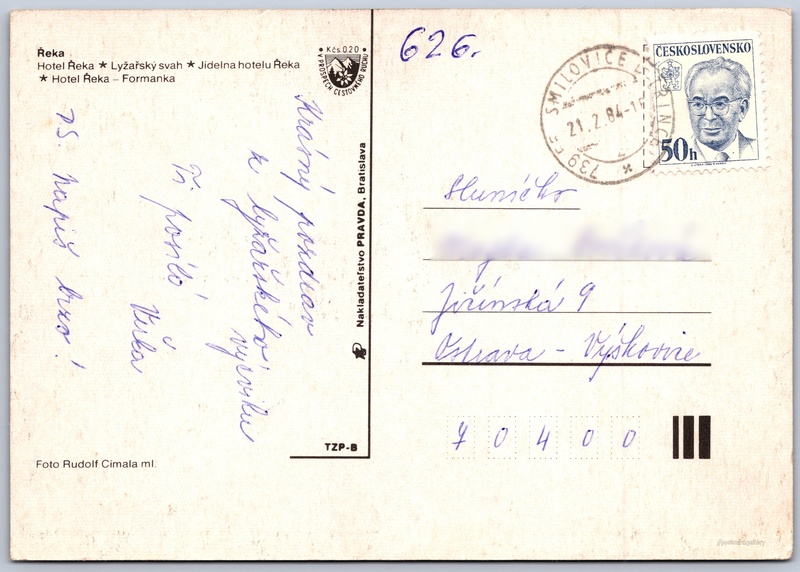 Řeka
Hotel Řeka ★ Lyžařský svah ★ Jídelna hotelu Řeka
★ Hotel Řeka – Formanka
Kčs 0.20
V PROSPĚCH CESTOVNÉHO RUCHU
Krásný pozdrav
z lyžařského
výcviku
Ti posílá
Věrka
PS. Napiš brzo!
Nakladateľstvo PRAVDA, Bratislava
TZP-B
Foto Rudolf Cimala ml.
626.
739 55 SMILOVICE
21.2.84-15
ČESKOSLOVENSKO
50h
Sluníčko
Jiřínská 9
Ostrava - Výškovice
70400